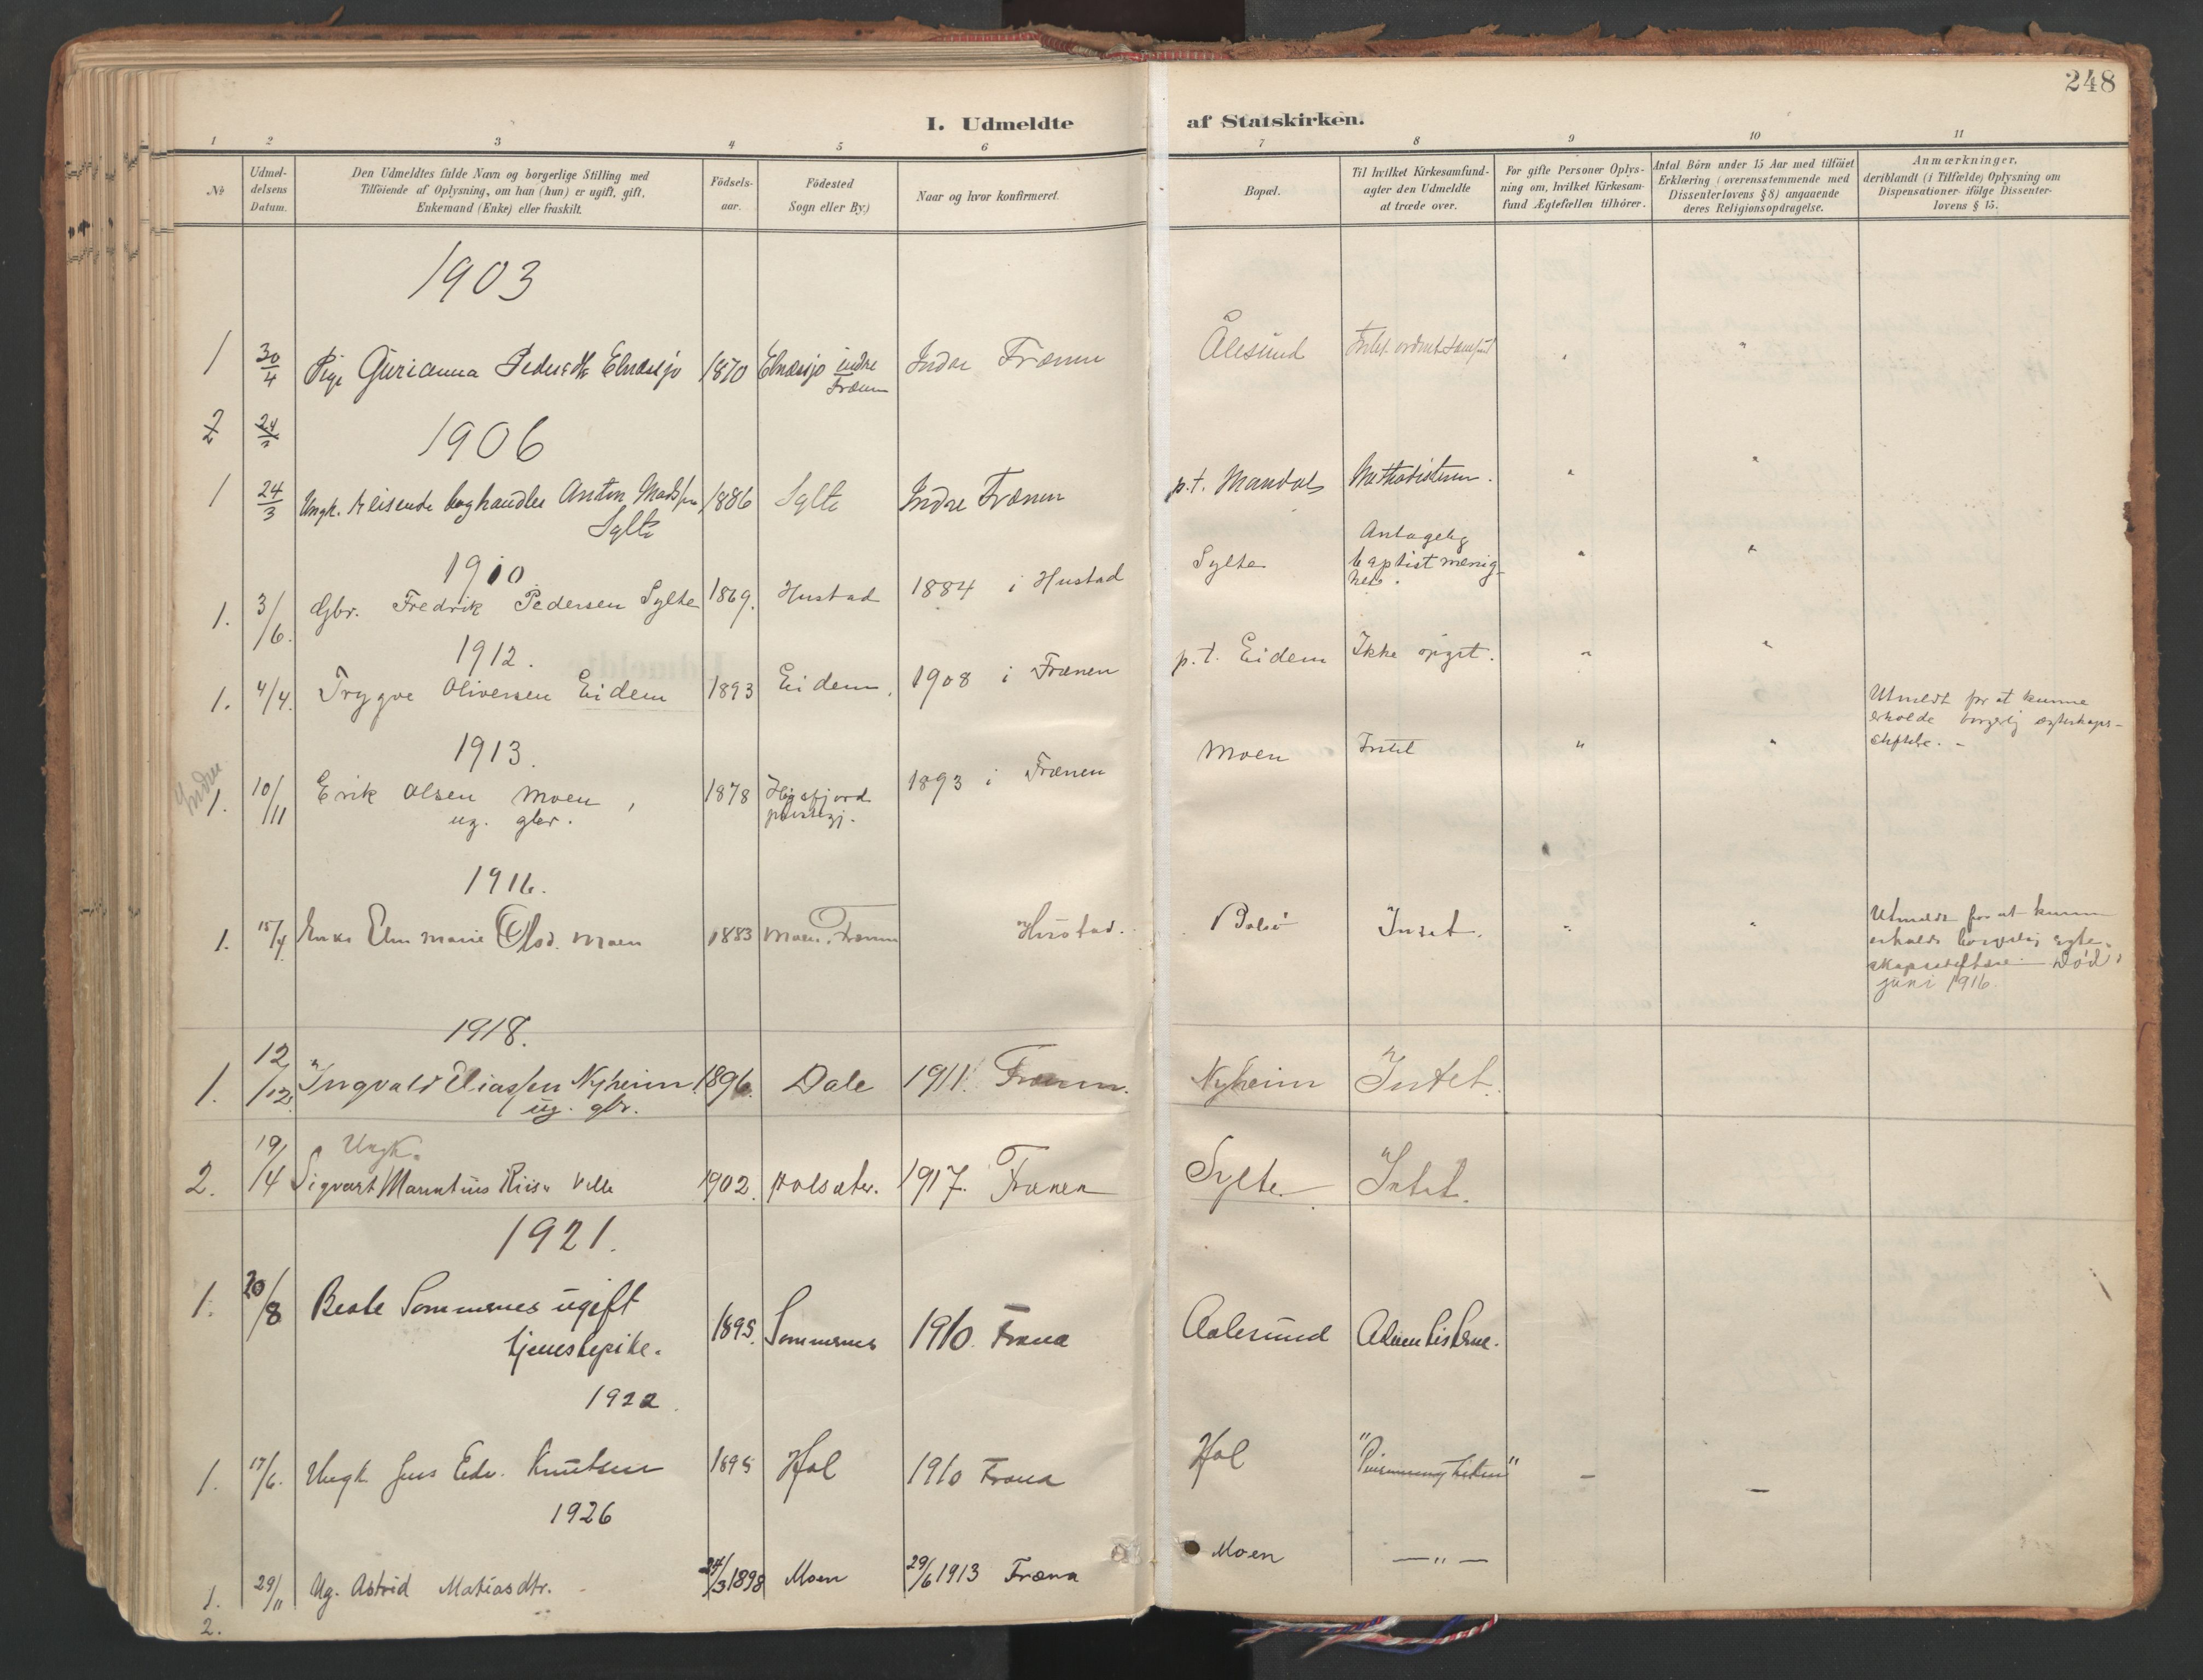 248
I. Udmeldte af Statskirken.
1 2 3 4 5 6 7 8 9 10 11
No
Udmel-
delsens
Datum.
Den Udmeldtes fulde Navn og borgerlige Stilling med
Tilföiende af Oplysning, om han (hun) er ugift, gift,
Enkemand (Enke) eller fraskilt.
Födsels-
aar.
Födested
Sogn eller By)
Naar og hvor konfirmeret.
Bopæl.
Til hvilket Kirkesamfund-
agter den Udmeldte
at træde over.
For gifte Personer Oplys-
ning om, hvilket Kirkesam-
fund Ægtefællen tilhörer.
Antal Börn under 15 Aar med tilföiet
Erklæring (overensstemmende med
Dissenterlovens § 8) angaaende
deres Religionsopdragelse.
Anmærkninger,
deriblandt (i Tilfælde) Oplysning om
Dispensationer ifölge Dissenter-
lovens § 15.
1903
1 30/4 Pige Gurianna Pedersdtr Elnæsjø 1870 Elnæsjø indre Indre Frænen Ålesund "
Frænen
2 24/3
1906
1 24/3 Ungk. Reisende boghandler Anton Madsen 1886 Sylte Indre Frænen p.t. Mandal Methodisterne. " "
Sylte
1910
1. 3/6. Gbr. Fredrik Pedersen Sylte 1869. Hustad 1884 i Hustad Sylte Antagelig " "
baptistmenig-
het.
1912.
1. 4/4. Trygve Oliversen Eidem 1893 Eidem. 1908 i Frænen p.t. Eidem Ikke opgit. " "
1913.
Indre
1. 10/11 Erik Olsen Moen, 1878 1893 i Frænen Moen Intet " " Utmeldt for at kunne
ug. gbr. prestegj. erholde borgerlig egteskaps-
stiftelse. -
1916.
1. 15/4 Enke Elen Marie Olsd. Moen 1883 Moen, Frænen Hustad. Bolsø Intet. " " Utmeldt for at kunne
erholde borgerlig egte-
skapsstiftelse. Død i
juni 1916.
1918.
1. 12/12. Ingvald Eliassen Nyheim 1896. Dale 1911. Frænen. Nyheim Intet.
ug. gbr.
2. 19/14 Ungk.
Sigvart Marentius Riise 1902. 1917. Frænen Sylte. Intet.
1921.
1. 20/8 Beate Sommernes ugift 1895. Sommernes 1910. Fræna Aalesund Adventisterne.
tjenestepike.
1922.
1. 17/6. Ungk. Jens Edv. Knutsen 1895 Hol 1910 Fræna Hol "Pinsemenigheten" - -
1926
1. 29/11 Ug. Astrid Matiasdtr. 24/3 1898 Moen 29/6 1913 Fræna Moen — " —
2.